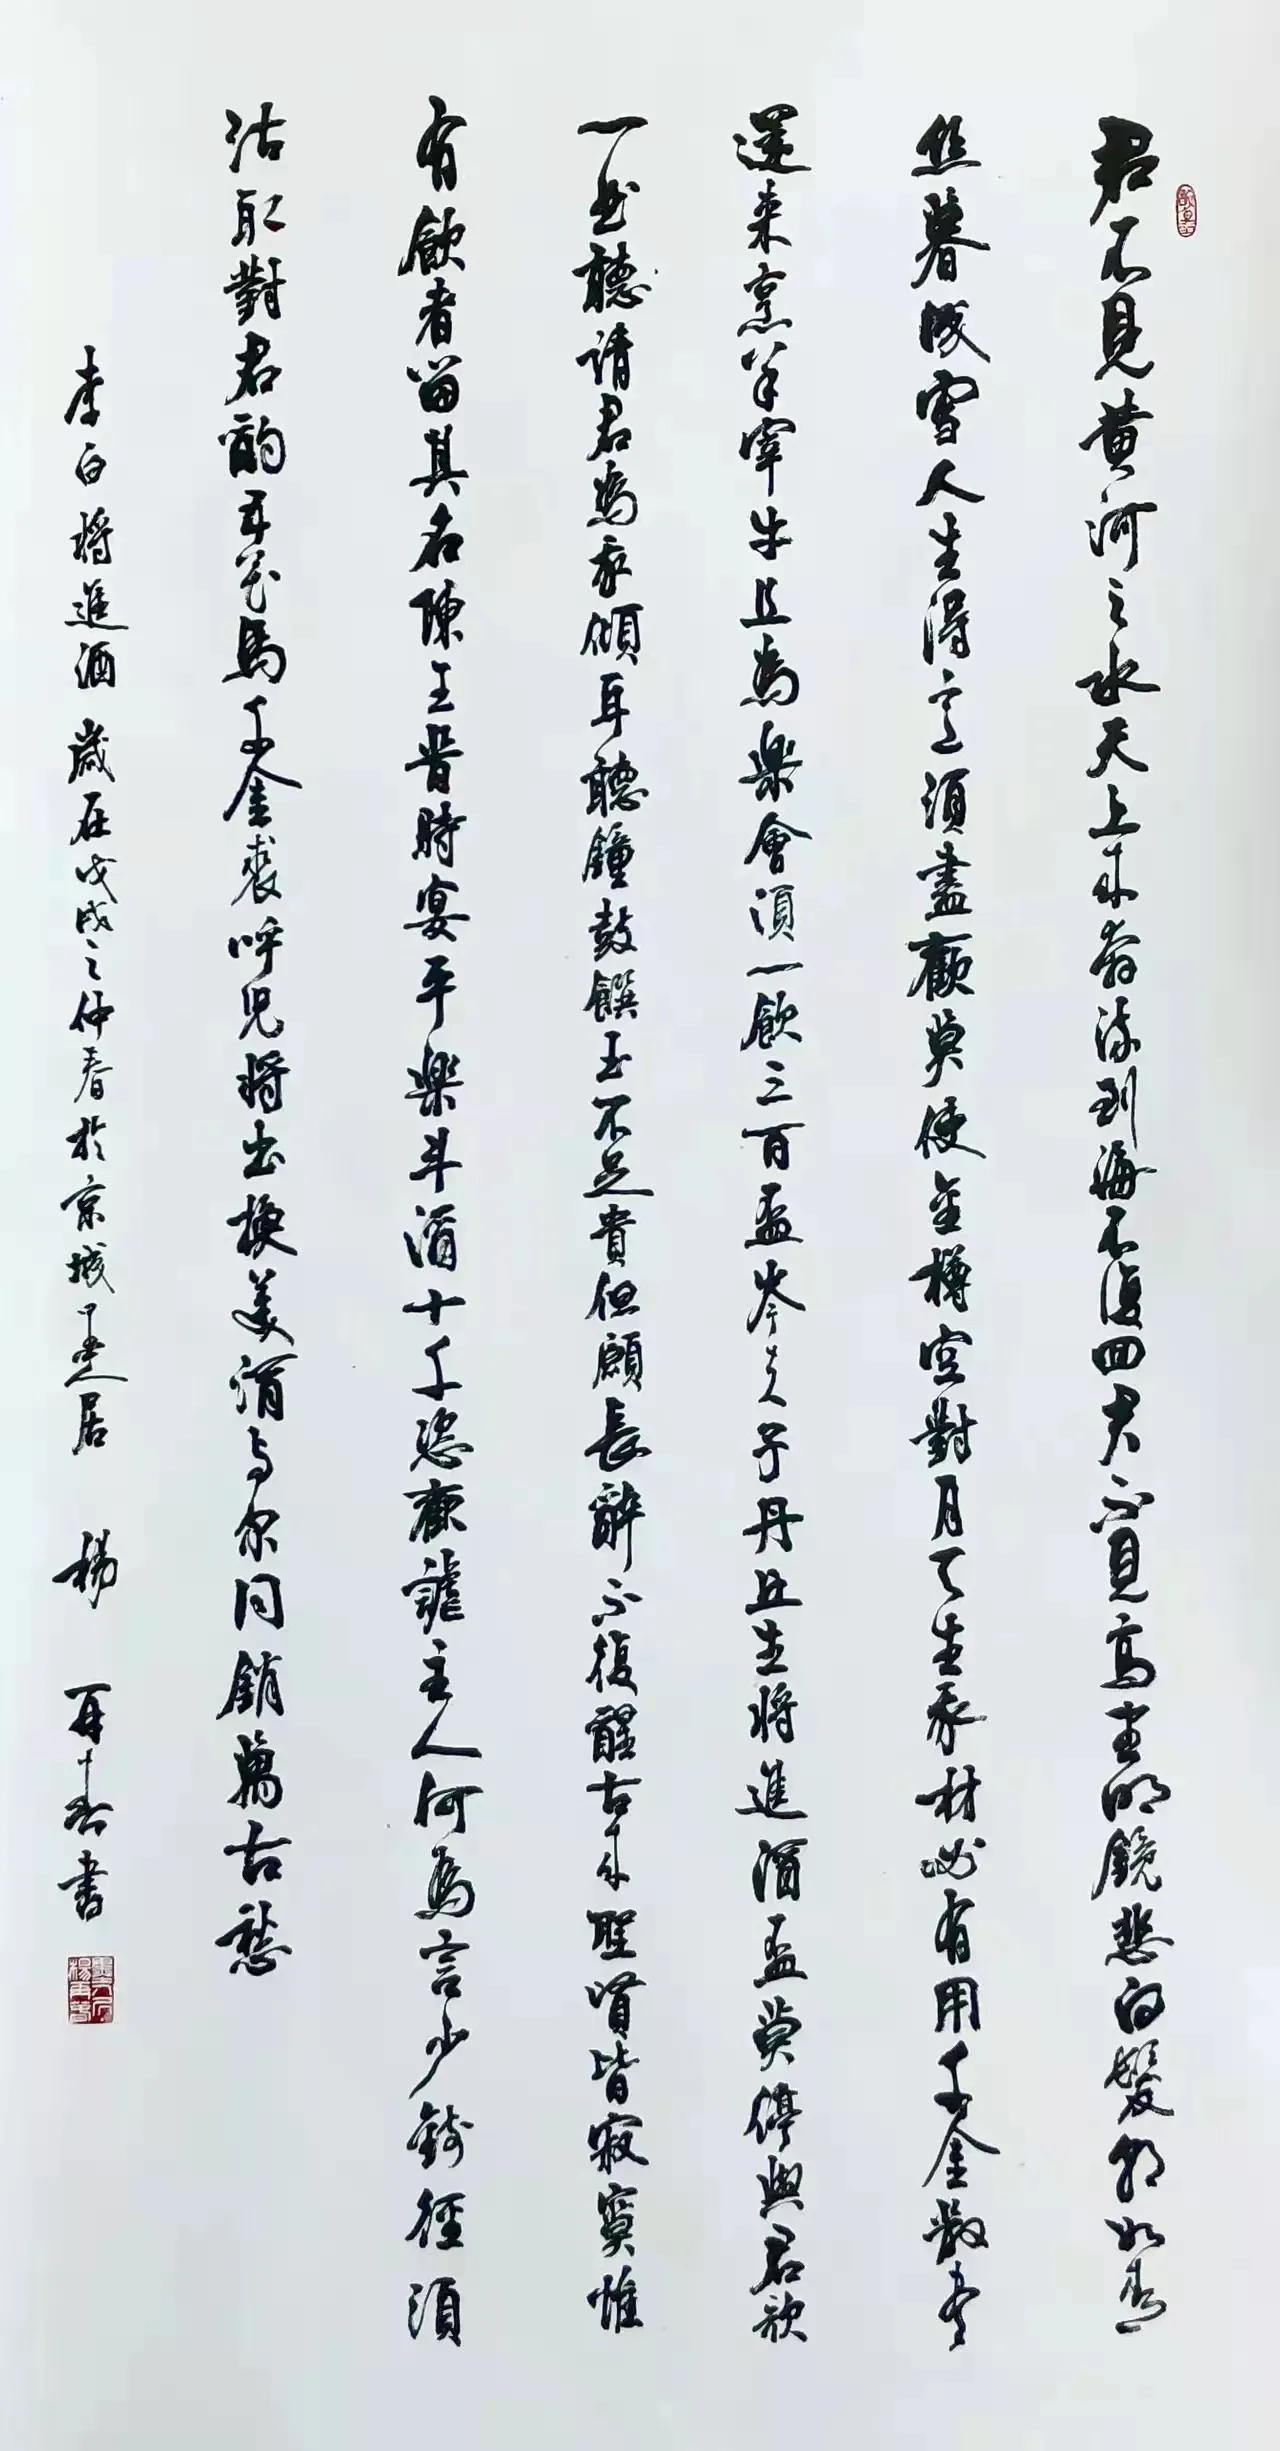 君不見黄河之水天上来奔流到海不復回君不見高堂明鏡悲白髮朝如青
丝暮成雪人生得意須盡歡莫使金樽空對月天生我材必有用千金散盡
還来烹羊宰牛且為樂會須一飲三百盃岑夫子丹丘生將進酒盃莫停與君歌
一曲聽請君為我傾耳聽鐘鼓饌玉不足貴但願長醉不復醒古来聖賢皆寂寞惟
有飲者留其名陳王昔時宴平樂斗酒十千恣歡謔主人何為言少錢徑須
沽取對君酌五花馬千金裘呼兒將出換美酒与尔同銷萬古愁
李白將進酒 歲在戊戌之仲春於京城居 楊再春書